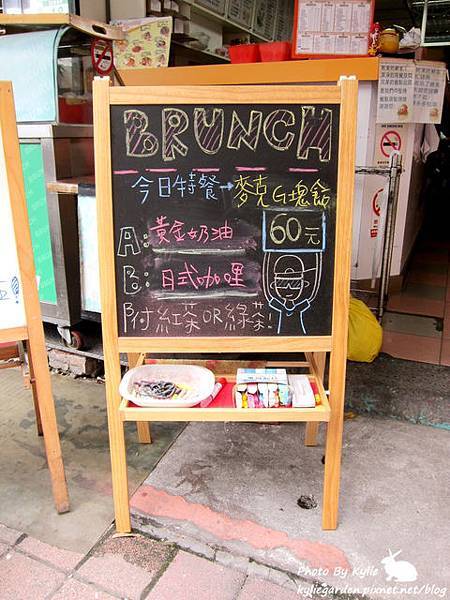 BRUNCH
今日特餐→麥克G塊飯
A:黃金奶油
60元
B:日式咖哩
附紅茶OR綠茶!
Photo By Kylie
kyliegarden.pixnet.net/blog